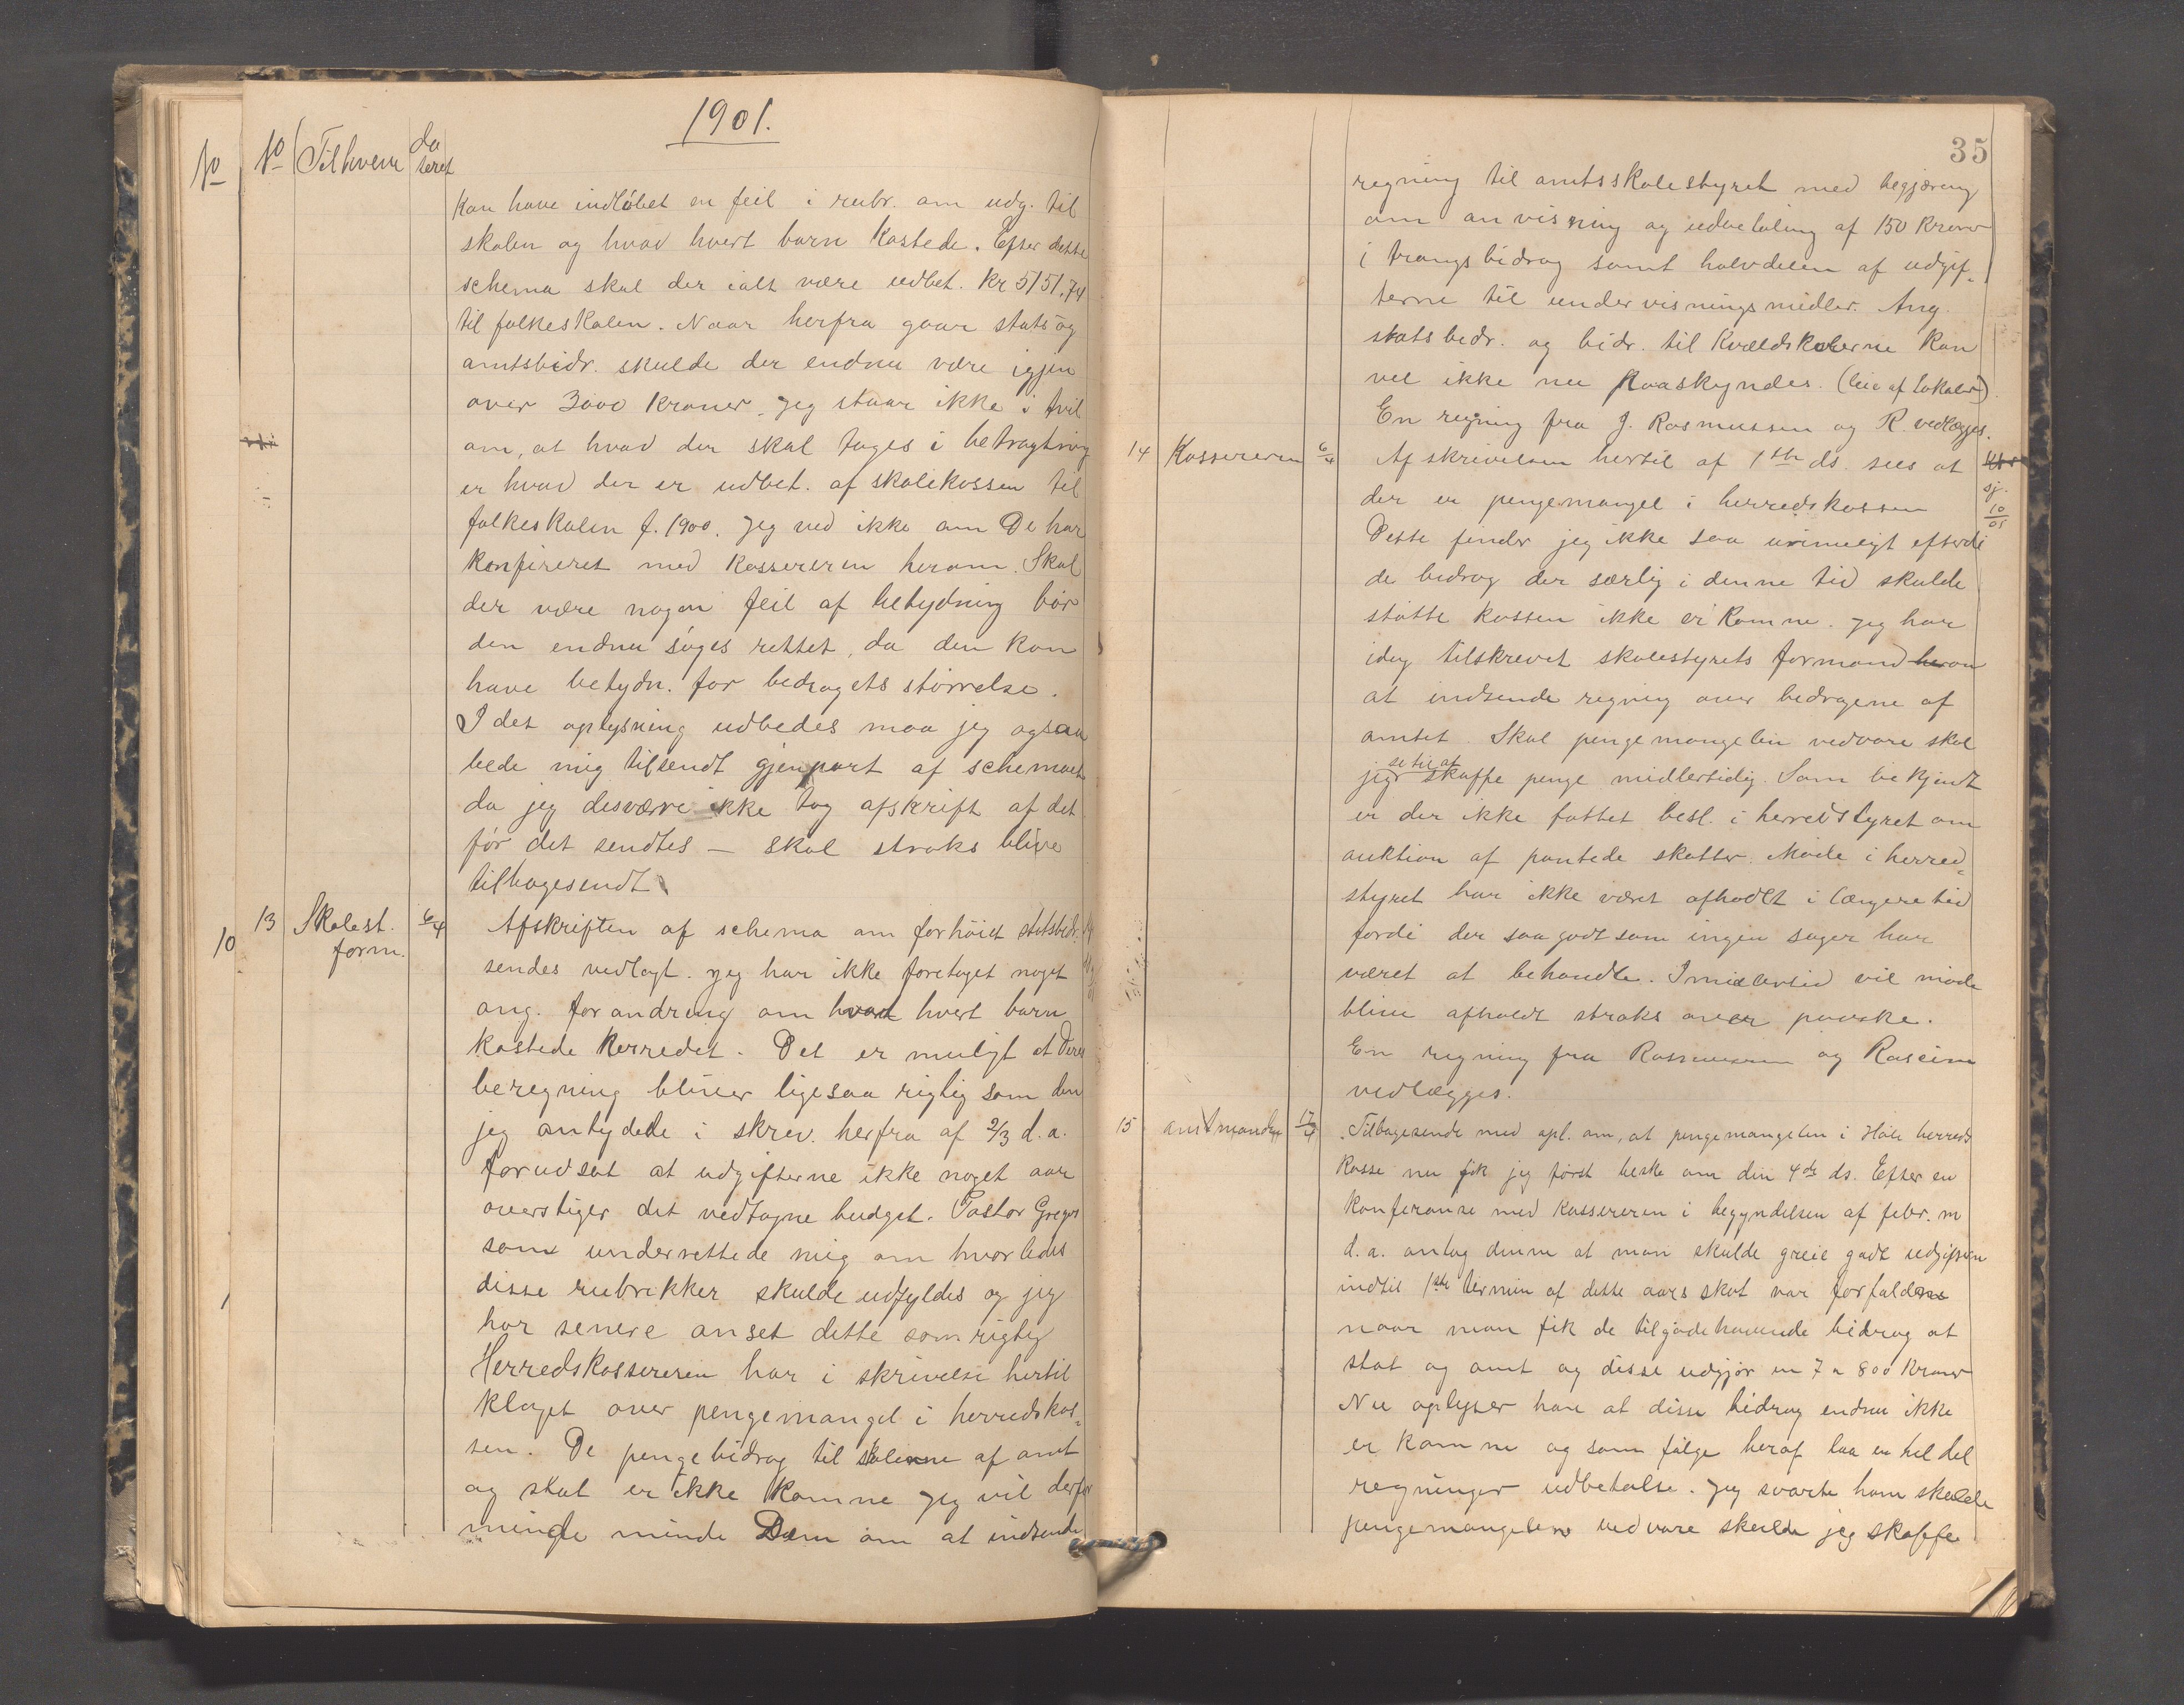 1901.
No
No Til hvem da
teret
kan have indløbet en feil i rubr. om udg. til
skolen og hvad hvert barn kostede. Efter dette
schema skal der ialt være udbet. kr 5151,74
til folkeskolen. Naar herfra gaar stats og
amtsbidr. skulde der endnu være igjen
over 3000 kroner. Jeg staar ikke i tvil
om, at hvad der skal tages i betragtning
er hvad der er udbet. af skolekassen til
folkeskolen f. 1900. Jeg ved ikke om De har
konfireret med kassereren herom. Skal
der være nogen feil af betydning bør
den endnu søges rettet, da den kan
have betydn. for bedragets størrelse.
I det oplysning udbedes maa jeg ogsaa
bede mig tilsendt gjenpart af schemaet
da jeg desværre ikke tog afskrift af det
før det sendtes — skal straks blive
tilbagesendt.
10 13 Skolest. 6/4 Afskriften af schema om forhøiet statsbidr.
form.
sendes vedlagt. Jeg har ikke foretaget noget
ang. forandring om hvad hvert barn
kostede herredet. Det er muligt at Deres
beregning bliver ligesaa rigtig som den
jeg antydede i skriv. herfra af 2/3 d.a.
forudsat at udgifterne ikke noget aar
overstiger det vedtagne budget. Pastor Gregers
som underrettede mig om hvorledes
disse rubrikker skulde udfyldes og jeg
har senere anset dette som rigtig
Herredskassereren har i skrivelse hertil
klaget over pengemangel i herredskas-
sen. De pengebidrag til skolerne af amt
og stat er ikke komne jeg vil derfor
minde Dem om at indsende
35
regning til amtsskolestyret med begjæring
om anvisning og udbetaling af 150 kroner
i trangsbidrag samt halvdelen af udgif-
terne til undervisningsmidler. Ang.
statsbedr. og bidr. til kvældskolerne kan
vel ikke nu paaskyndes. (leie af lokaler)
En regning fra J. Rasmussen og R. vedlægges.
14 Kassereren 6/4 Af skrivelsen hertil af 1ste ds. sees at
der er pengemangel i herredskassen
sj. 10/01
Dette finder jeg ikke saa urimeligt efterdi
de bedrag der særlig i denne tid skulde
støtte kassen ikke er komne. Jeg har
idag tilskrevet skolestyrets formand om
at indsende regning over bedragene af
amtet. Skal pengemangelen vedvare skal
se til at
jeg skaffe penge midlertidig. Som bekjendt
er der ikke fattet besl. i herredstyret om
auktion af pantede skatter. Møde i herred-
styret har ikke været afholdt i længere tid
fordi der saa godt som ingen sager har
været at behandle. Imidlertid vil møde
blive afholdt straks over paaske.
En regning fra Rasmussen og Raseim
vedlægges.
15 amtmanden 17/4 Tilbagesendt med opl. om, at pengemangelen i Hole herreds
kasse nu fik jeg først beske om den 4de ds. Efter en
konferanse med kassereren i begyndelsen af febr. m
d.a. antog denne at man skulde greie godt udgiften
indtil 1ste termin af dette aars skat var forfaldne
naar man fik de tilgodehavende bidrag af
stat og amt og disse udgjør en 7 a 800 kroner
Nu oplyser han at disse bidrag endnu ikke
er komne og som følge heraf laa en hel del
regninger udbetalse. Jeg svarte ham skulde
pengemangelen vedvare skulde jeg skaffe